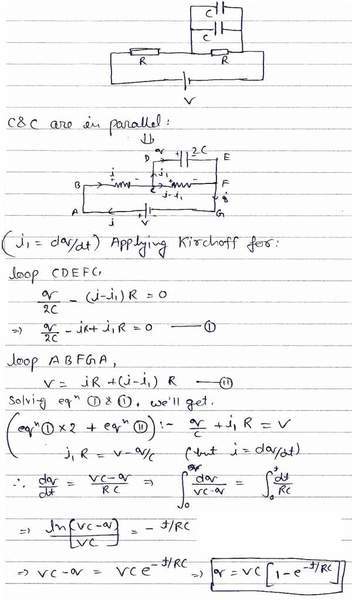 C
C
R
R
V
C&C are in parallel:
⇓
D q 2C E
i i₁
B C i-i₁ F
A i V G
(i₁ = dq/dt) Applying Kirchoff for:
loop CDEFC,
q/2C - (i-i₁) R = 0
⇒ q/2C - iR + i₁R = 0 — Ⓘ
loop ABFGA,
V = iR + (i-i₁) R — Ⓘⓘ
Solving eqⁿ Ⓘ & Ⓘ, we'll get.
(eqⁿ Ⓘ × 2 + eqⁿ Ⓘⓘ) :- q/C + i₁R = V
i₁R = V - q/C (but i = dq/dt)
∴ dq/dt = (VC-q)/RC ⇒ ∫₀^q dq/(VC-q) = ∫₀^t dt/RC
⇒ ln[(VC-q)/VC] = -t/RC
⇒ VC-q = VC e^(-t/RC) ⇒ q = VC [1-e^(-t/RC)]